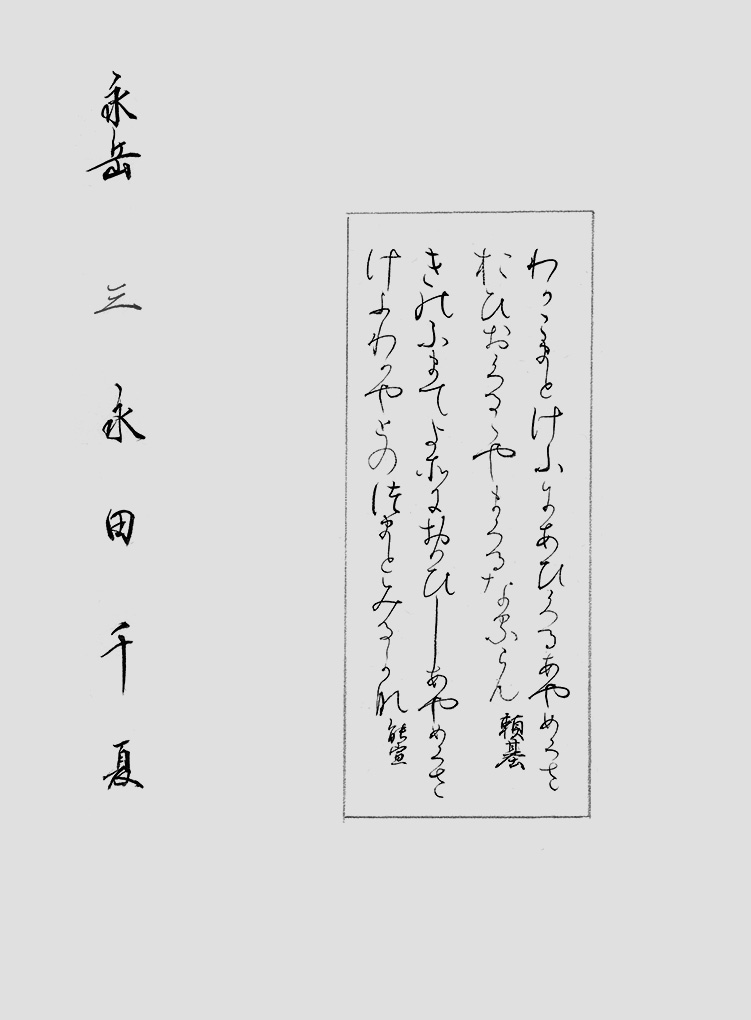 わかこまとけふにあひくるあやめくさ
おひおくるゝやまくるなるらん 頼基
きのふまてよそにおもひしあやめくさ
けふわかやとのつまとみるかな 能宣
永岳 三 永田千夏